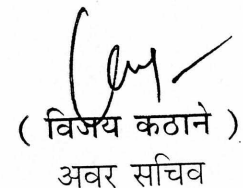 ( विजय कठाने )
अवर सचिव